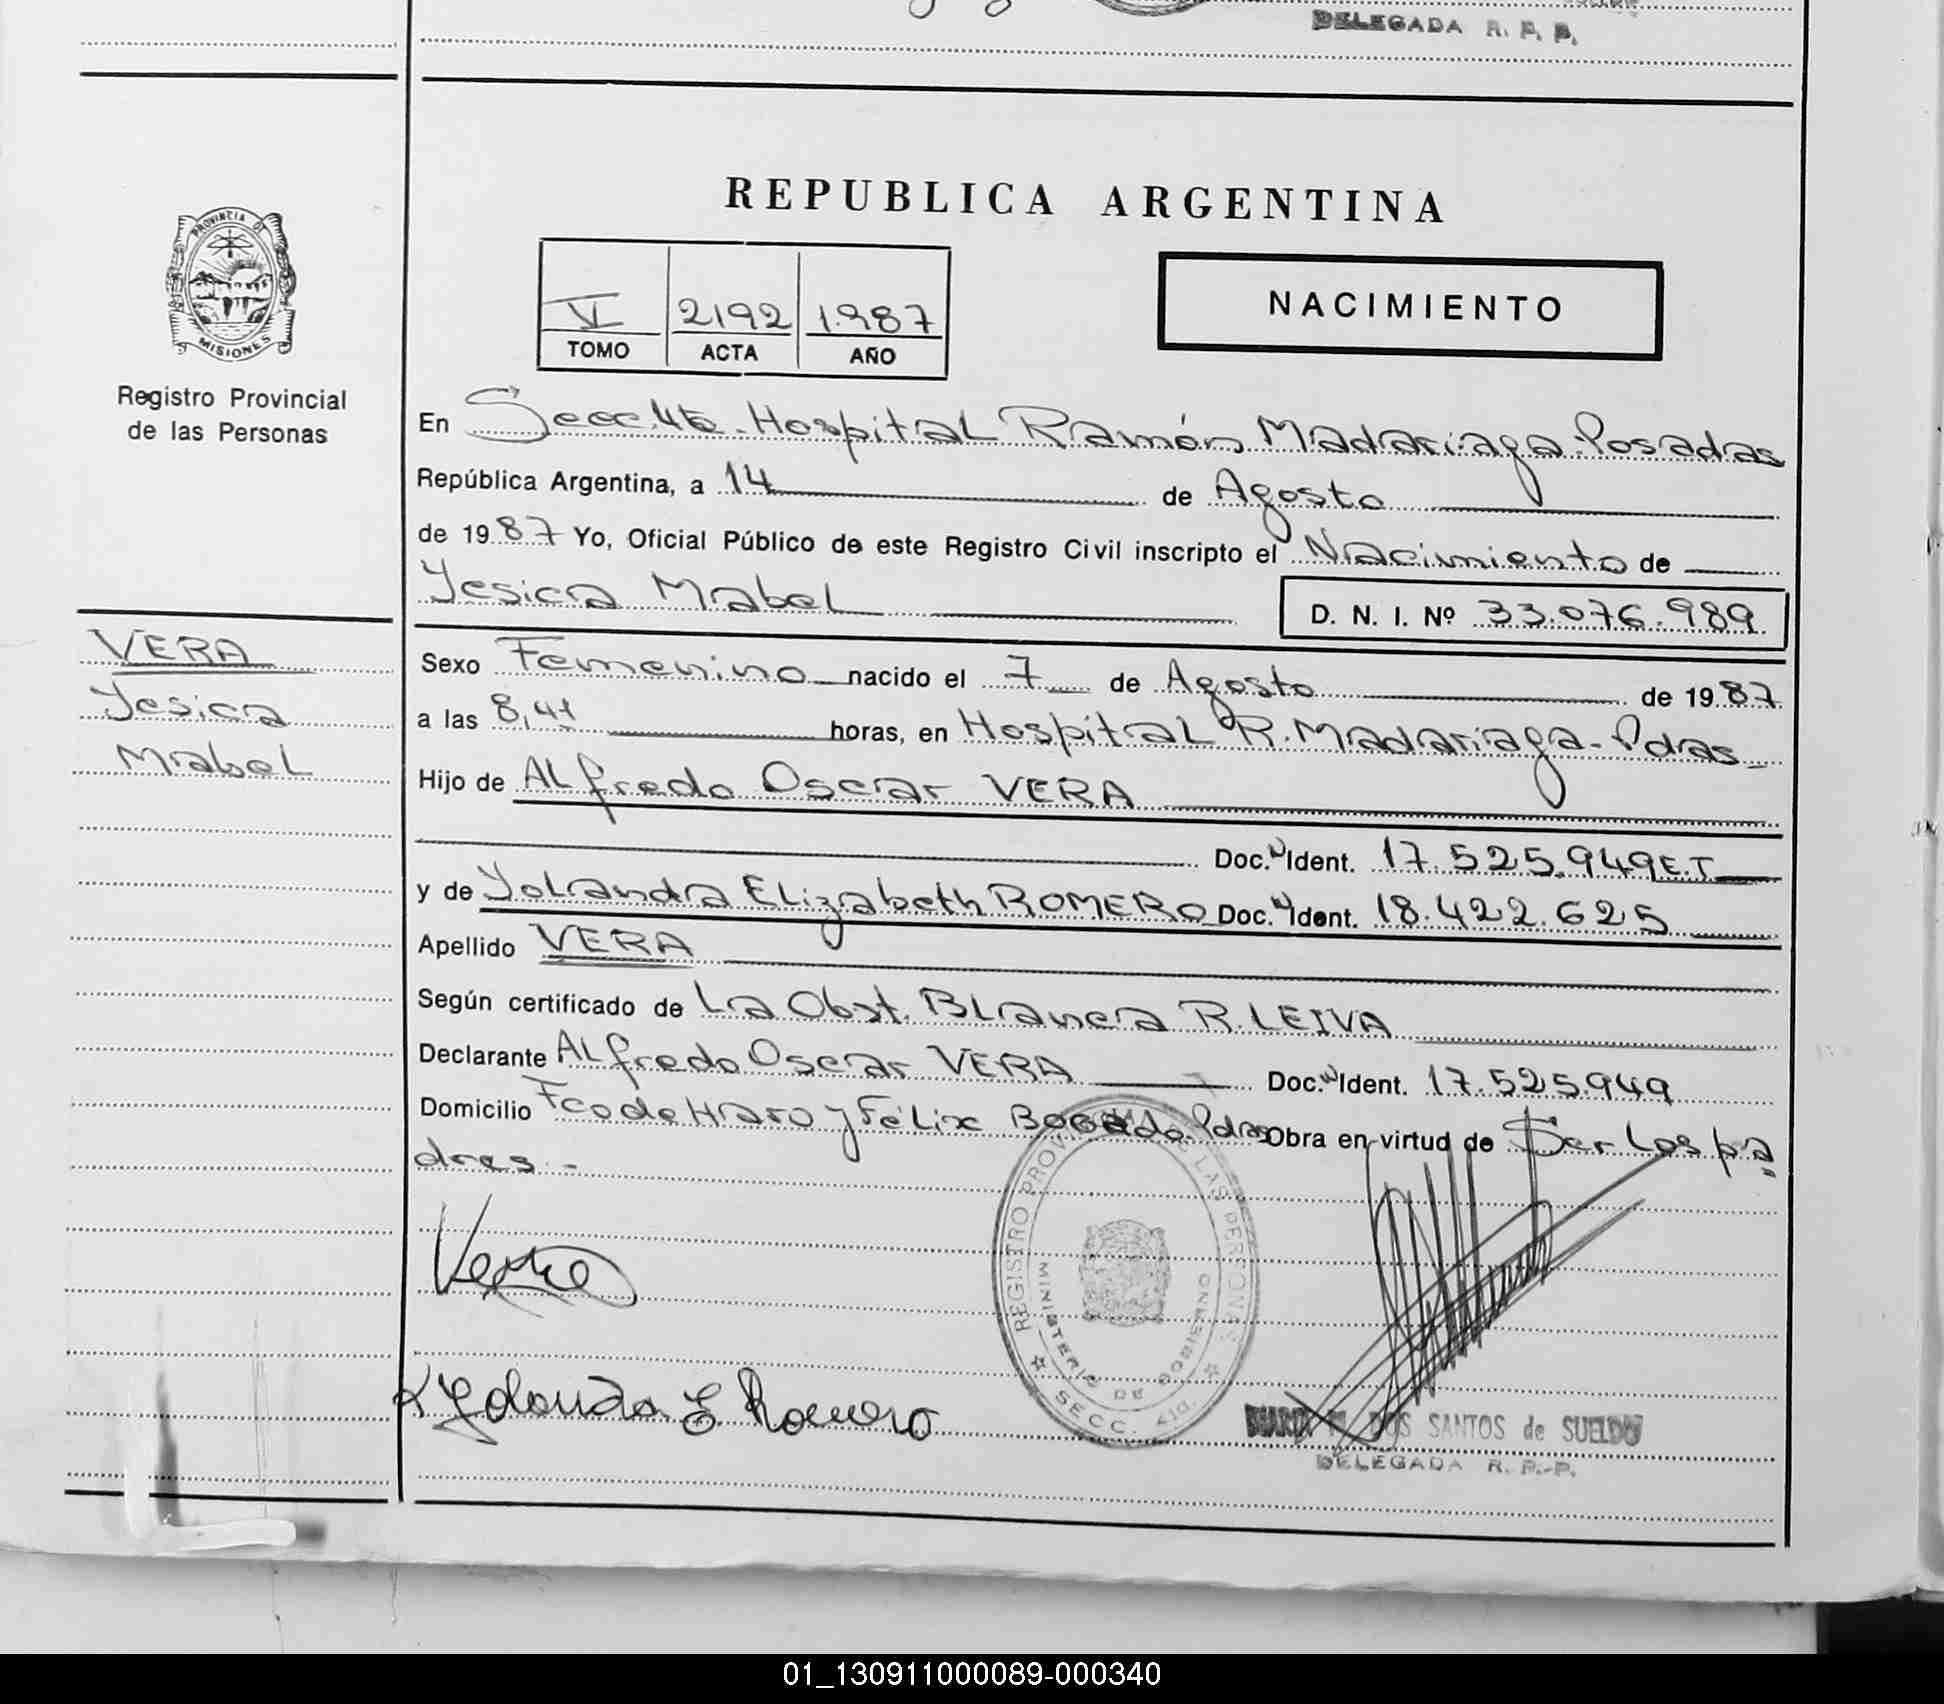 DELEGADA R. P. P.
REPUBLICA ARGENTINA
PROVINCIA DE
MISIONES
Registro Provincial
de las Personas
VI 2192 1.987
TOMO ACTA AÑO
NACIMIENTO
En Secc. 4ta. Hospital Ramón Madariaga-Posadas
República Argentina, a 14 de Agosto
de 1987 Yo, Oficial Público de este Registro Civil inscripto el Nacimiento de
Yesica Mabel D. N. I. Nº 33.076.989
VERA
Yesica
Mabel
Sexo Femenino nacido el 7 de Agosto de 1987
a las 8,41 horas, en Hospital R. Madariaga-Pdas
Hijo de Alfredo Oscar VERA
Doc. Ident. 17.525.949 E.T.
y de Yolanda Elizabeth ROMERO Doc. Ident. 18.422.625
Apellido VERA
Según certificado de La Obst. Blanca R. LEIVA
Declarante Alfredo Oscar VERA Doc. Ident. 17.525.949
Domicilio Fco de Haro y Félix Bogado. Pdas Obra en virtud de Ser Los pa
dres.-
REGISTRO PROV DE LAS PERSONAS
MINISTERIO DE GOBIERNO
SECC. 4ta.
Vera
Yolanda E Romero
DOS SANTOS de SUELDO
DELEGADA R. P. P.
01_130911000089-000340